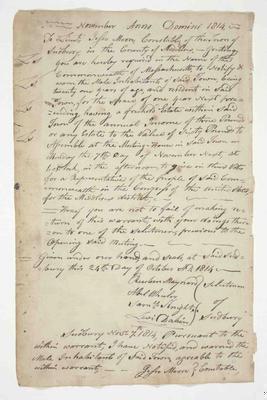 November Anno Domini 1814
To Jesse Moore Constable of the Town of
Sudbury in the County of Middlesex Greeting
you are hereby required in the Name of the
Commonwealth of Massachusetts, to Notify &
warn the Male Inhabitants of said Town, being
twenty one years of age and resident in said
Town for the Space of one year Next
having a freehold Estate within said
Town of the Annual Income of three Pounds
or any Estate to the Value of Sixty Pounds to
Assemble at the Meeting House in said Town on
Monday the 7th Day of November Next, at
Clock, in the afternoon to give in their Votes
for a Representative of the people of said Com
monwealth in the Congress of the United States
for the Middlesex district
Hereof you are not to fail of making re
turn of this warrant, with your doings there
on to one of the Selectmen, previous to the
Opening said Meeting
Given under our hands and seals at said Sud
bury this 24th Day of October AD. 1814
Reuben Maynard
Selectmen
of
Levi Dakin
Sudbury
Sudbury Novr 7th 1814. Pursuant to the
within warrant, I have Notified, and warned the
Male Inhabitants of said Town, agreeable to the
within warrant Jesse Moore Constable